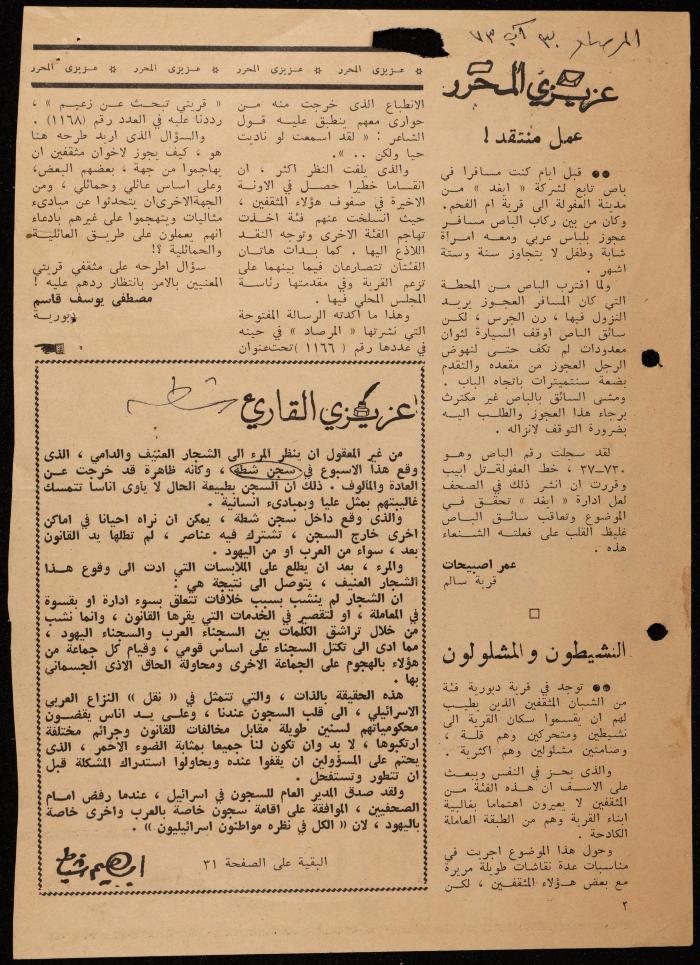 المرصاد ٣٠ آب ٧٣
عزيزي المحرر
عمل منتقد !
●● قبل ايام كنت مسافرا في
باص تابع لشركة « ايغد » من
مدينة العفولة الى قرية ام الفحم .
وكان من بين ركاب الباص مسافر
عجوز بلباس عربي ومعه امرأة
شابة وطفل لا يتجاوز سنة وستة
اشهر .
ولما اقترب الباص من المحطة
التي كان المسافر العجوز يريد
النزول فيها ، رن الجرس ، لكن
سائق الباص اوقف السيارة لثوان
معدودات لم تكف حتى لنهوض
الرجل العجوز من مقعده والتقدم
بضعة سنتميترات باتجاه الباب .
ومشى السائق بالباص غير مكترث
برجاء هذا العجوز والطلب اليه
بضرورة التوقف لانزاله .
لقد سجلت رقم الباص وهو
٧٣٠–٣٧ ، خط العفولة–تل ابيب
وقررت ان انشر ذلك في الصحف
لعل ادارة « ايغد » تحقق في
الموضوع وتعاقب سائق الباص
غليظ القلب على فعلته الشنعاء
هذه .
عمر اصبيحات
قرية سالم
النشيطون والمشلولون
●● توجد في قرية دبورية فئة
من الشبان المثقفين الذين يطيب
لهم ان يقسموا سكان القرية الى
نشيطين ومتحركين وهم قلة ،
وصامتين مشلولين وهم اكثرية .
والذى يحز في النفس ويبعث
على الاسف ان هذه الفئة من
المثقفين لا يعيرون اهتماما بغالبية
ابناء القرية وهم من الطبقة العاملة
الكادحة .
وحول هذا الموضوع اجريت في
مناسبات عدة نقاشات طويلة مريرة
مع بعض هؤلاء المثقفين ، لكن
٢
* عزيزى المحرر * عزيزى المحرر * عزيزى المحرر * عزيزى المحرر
الانطباع الذى خرجت منه من
حوارى معهم ينطبق عليه قول
الشاعر : « لقد اسمعت لو ناديت
حيا ولكن .. » .
والذى يلفت النظر اكثر ، ان
انقساما خطيرا حصل في الاونة
الاخيرة في صفوف هؤلاء المثقفين ،
حيث انسلخت عنهم فئة اخذت
تهاجم الفئة الاخرى وتوجه النقد
اللاذع اليها . كما بدأت هاتان
الفئتان تتصارعان فيما بينهما على
تزعم القرية وفي مقدمتها رئاسة
المجلس المحلي فيها .
وهذا ما اكدته الرسالة المفتوحة
التي نشرتها « المرصاد » في حينه
في عددها رقم ( ١١٦٦ ) تحت عنوان
« قريتي تبحث عن زعيم » ،
رددنا عليه في العدد رقم (١١٦٨) .
والسؤال الذى اريد طرحه هنا
هو ، كيف يجوز لاخوان مثقفين ان
يهاجموا من جهة ، بعضهم البعض،
وعلى اساس عائلي وحمائلي ، ومن
الجهة الاخرى ان يتحدثوا عن مبادىء
مثاليات ويتهجموا على غيرهم بادعاء
انهم يعملون على طريق العائلية
والحمائلية ؟!
سؤال اطرحه على مثقفي قريتي
المعنيين بالامر بانتظار ردهم عليه !
مصطفى يوسف قاسم
دبورية
عزيزي القارىء شطه
من غير المعقول ان ينظر المرء الى الشجار العنيف والدامي ، الذى
وقع هذا الاسبوع في سجن شطة ، وكأنه ظاهرة قد خرجت عن
العادة والمألوف . ذلك ان السجن بطبيعة الحال لا يأوى اناسا تتمسك
غالبيتهم بمثل عليا وبمبادىء انسانية .
والذى وقع داخل سجن شطة ، يمكن ان نراه احيانا في اماكن
اخرى خارج السجن ، تشترك فيه عناصر ، لم تطلها يد القانون
بعد ، سواء من العرب او من اليهود .
والمرء ، بعد ان يطلع على الملابسات التي ادت الى وقوع هذا
الشجار العنيف ، يتوصل الى نتيجة هي :
ان الشجار لم ينشب بسبب خلافات تتعلق بسوء ادارة او بقسوة
في المعاملة ، او لتقصير في الخدمات التي يقرها القانون ، وانما نشب
من خلال تراشق الكلمات بين السجناء العرب والسجناء اليهود ،
مما ادى الى تكتل السجناء على اساس قومي ، وقيام كل جماعة من
هؤلاء بالهجوم على الجماعة الاخرى ومحاولة الحاق الاذى الجسماني
بها .
هذه الحقيقة بالذات ، والتي تتمثل في « نقل » النزاع العربي
الاسرائيلي ، الى قلب السجون عندنا ، وعلى يد اناس يقضون
محكومياتهم لسنين طويلة مقابل مخالفات للقانون وجرائم مختلفة
ارتكبوها ، لا بد وان تكون لنا جميعا بمثابة الضوء الاحمر ، الذى
يحتم على المسؤولين ان يقفوا عنده ويحاولوا استدراك المشكلة قبل
ان تتطور وتستفحل .
ولقد صدق المدير العام للسجون في اسرائيل ، عندما رفض امام
الصحفيين ، الموافقة على اقامة سجون خاصة بالعرب واخرى خاصة
باليهود ، لان « الكل في نظره مواطنون اسرائيليون » .
البقية على الصفحة ٣١
ابراهيم شباط